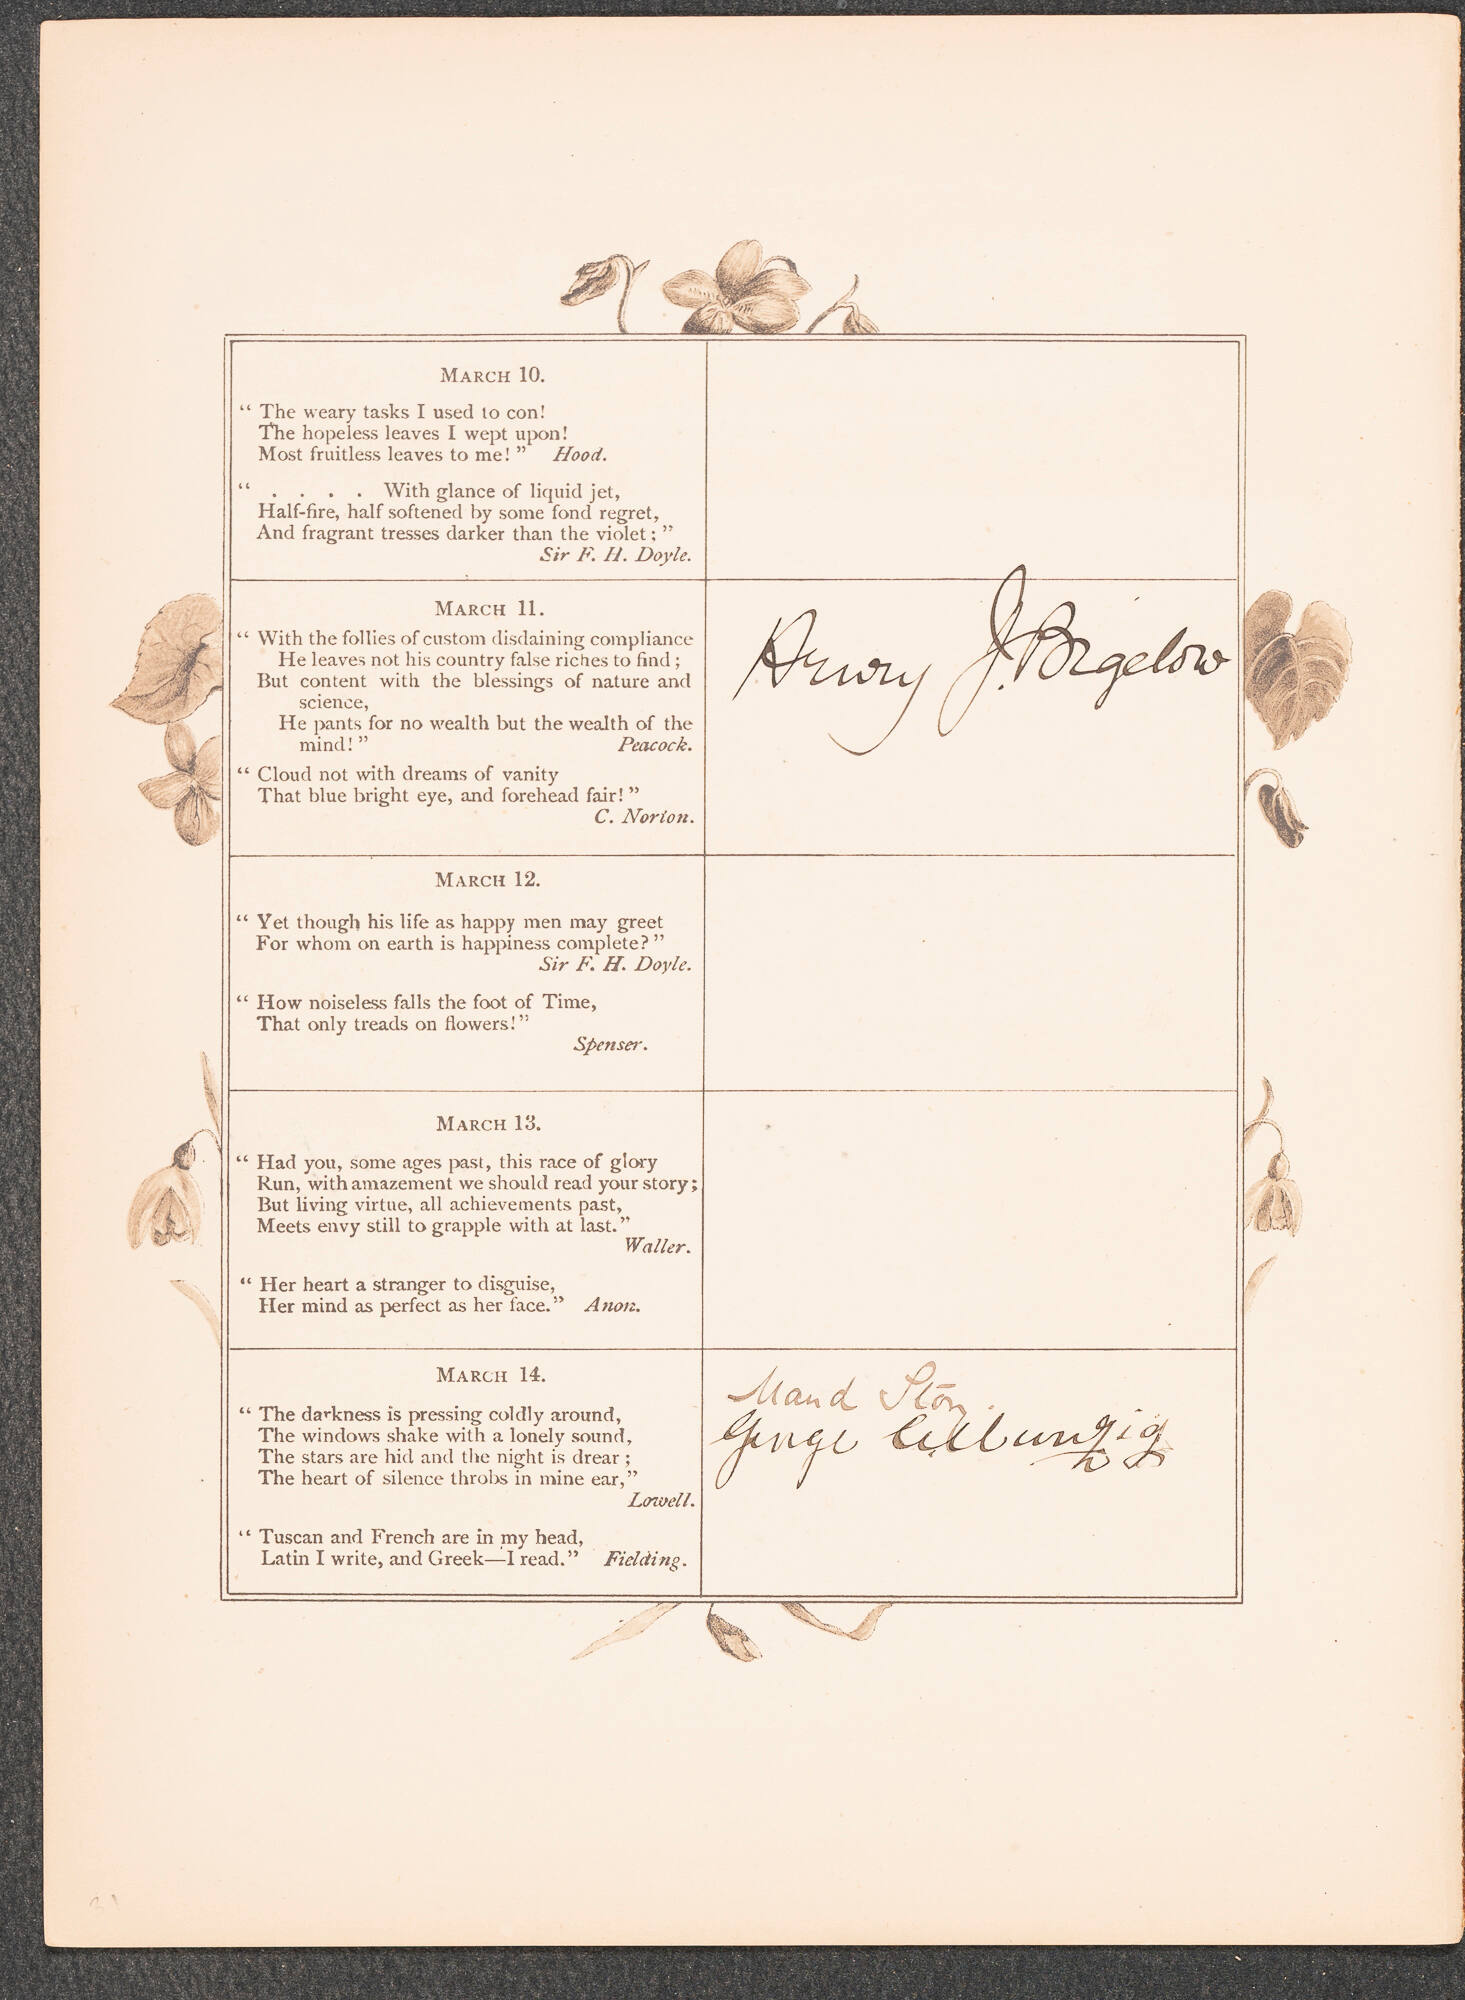 MARCH 10.
“ The weary tasks I used to con!
The hopeless leaves I wept upon!
Most fruitless leaves to me! ” Hood.
“ . . . . With glance of liquid jet,
Half-fire, half softened by some fond regret,
And fragrant tresses darker than the violet ; ”
Sir F. H. Doyle.
MARCH 11.
“ With the follies of custom disdaining compliance
He leaves not his country false riches to find ;
But content with the blessings of nature and
science,
He pants for no wealth but the wealth of the
mind! ” Peacock.
“ Cloud not with dreams of vanity
That blue bright eye, and forehead fair! ”
C. Norton.
Henry J. Bigelow
MARCH 12.
“ Yet though his life as happy men may greet
For whom on earth is happiness complete? ”
Sir F. H. Doyle.
“ How noiseless falls the foot of Time,
That only treads on flowers! ”
Spenser.
MARCH 13.
“ Had you, some ages past, this race of glory
Run, with amazement we should read your story ;
But living virtue, all achievements past,
Meets envy still to grapple with at last.”
Waller.
“ Her heart a stranger to disguise,
Her mind as perfect as her face.” Anon.
MARCH 14.
“ The darkness is pressing coldly around,
The windows shake with a lonely sound,
The stars are hid and the night is drear ;
The heart of silence throbs in mine ear,”
Lowell.
“ Tuscan and French are in my head,
Latin I write, and Greek—I read.” Fielding.
Maud
George
31